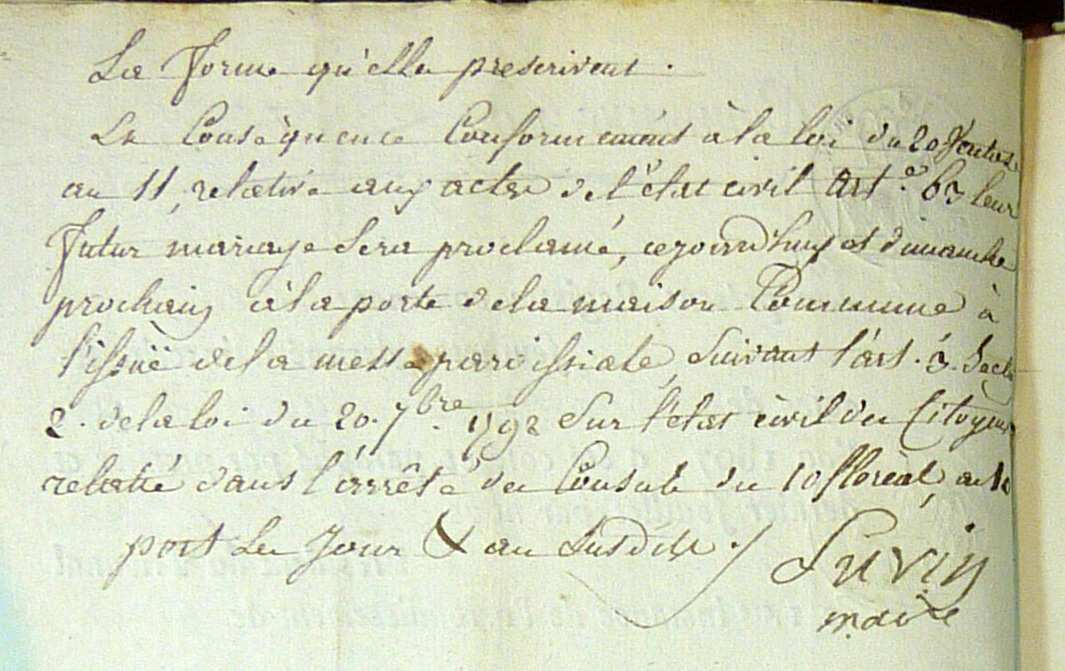 La forme qu'elle prescrivent.
En Conséquence Conformement à la loi du 20 Ventose
an 11, relative aux actes de l'état civil Art.e 63 leur
futur mariage sera proclamé, cejourd'huy et dimanche
prochain à la porte de la maison Commune à
l'issuë de la messe paroissiale, Suivant l'art. 3. Sect.
2. de la loi du 20. 7bre. 1792 Sur l'état civil des Citoyens
relatté dans l'arrêté des Consuls du 10 floréal, an 10
port Les Jour & an Susdits ./.
maire